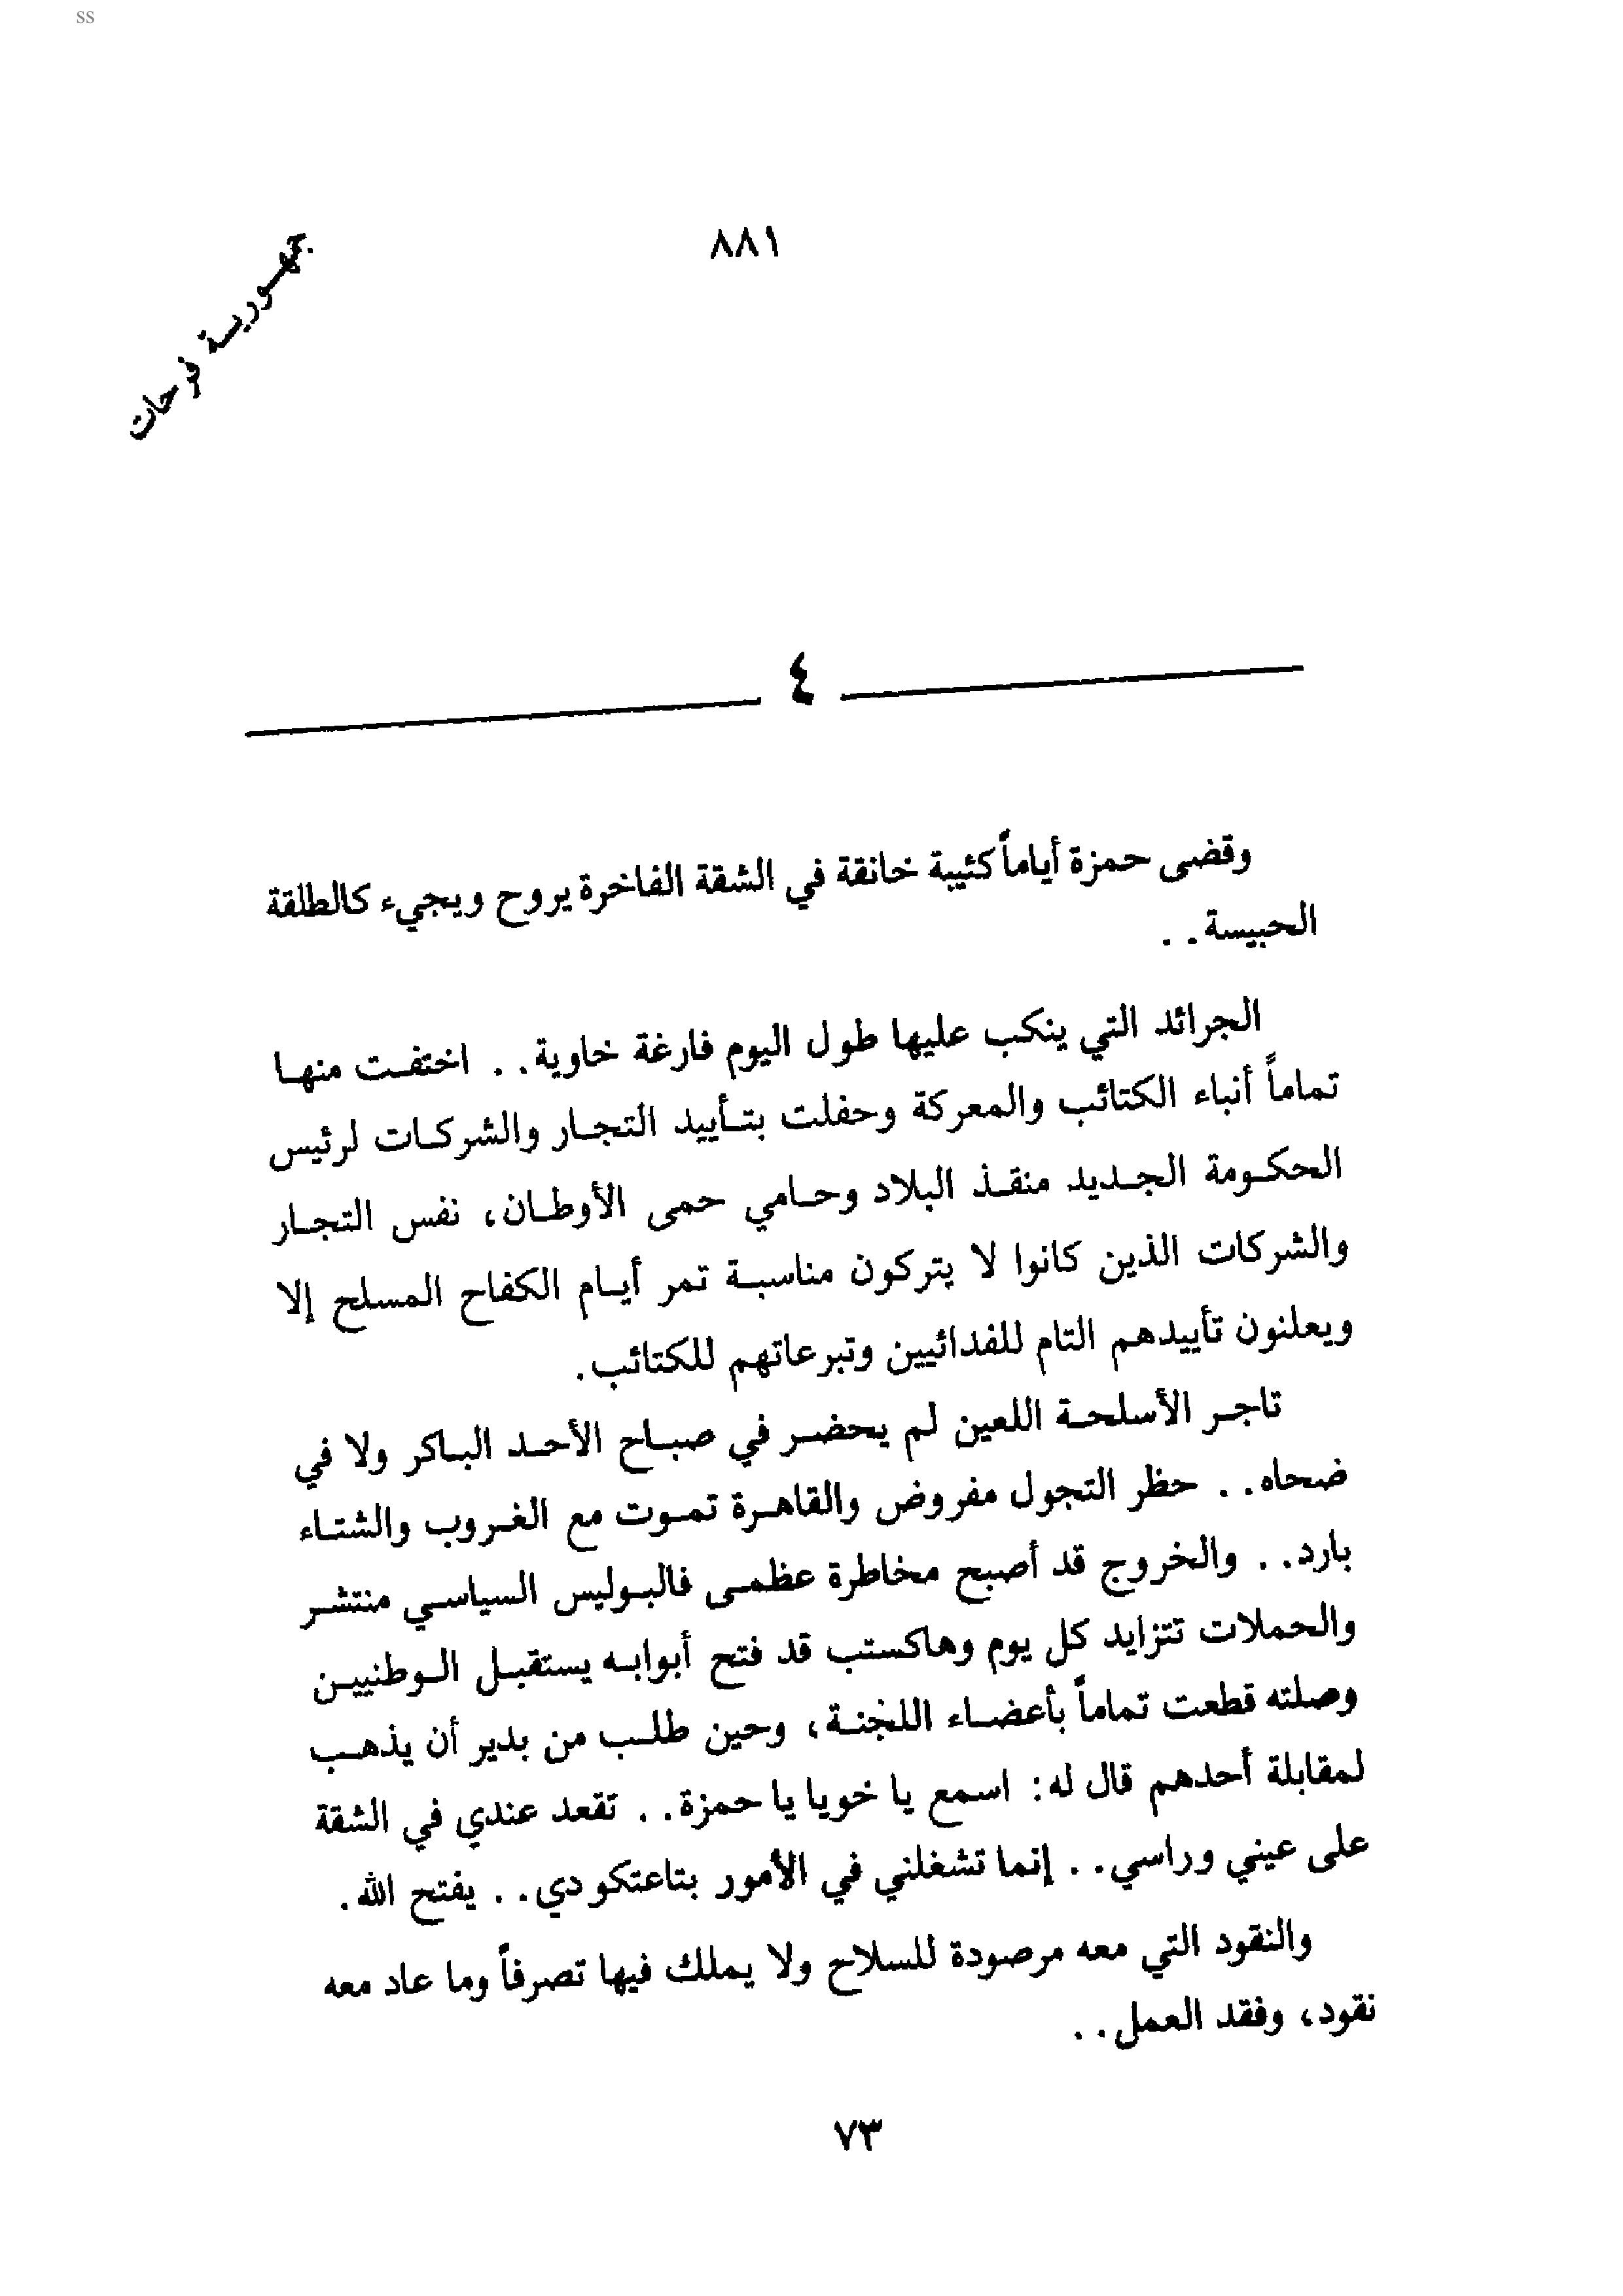 ss
٨٨١
جمهورية فرحات
٤
وقضى حمزة أياماً كئيبة خانقة في الشقة الفاخرة يروح ويجيء كالطلقة
الحبيسة . .
الجرائد التي ينكب عليها طول اليوم فارغة خاوية . . اختفت منها
تماماً أنباء الكتائب والمعركة وحفلت بتأييد التجار والشركات لرئيس
الحكومة الجديد منقذ البلاد وحامي حمى الأوطان، نفس التجار
والشركات الذين كانوا لا يتركون مناسبة تمر أيام الكفاح المسلح إلا
ويعلنون تأييدهم التام للفدائيين وتبرعاتهم للكتائب.
تاجر الأسلحة اللعين لم يحضر في صباح الأحد الباكر ولا في
ضحاه . . حظر التجول مفروض والقاهرة تموت مع الغروب والشتاء
بارد . . والخروج قد أصبح مخاطرة عظمى فالبوليس السياسي منتشر
والحملات تتزايد كل يوم وهاكستب قد فتح أبوابه يستقبل الوطنيين
وصلته قطعت تماماً بأعضاء اللجنة، وحين طلب من بدير أن يذهب
لمقابلة أحدهم قال له: اسمع يا خويا يا حمزة . . تقعد عندي في الشقة
على عيني وراسي . . إنما تشغلني في الأمور بتاعتكو دي . . يفتح الله.
والنقود التي معه مرصودة للسلاح ولا يملك فيها تصرفاً وما عاد معه
نقود، وفقد العمل . .
٧٣